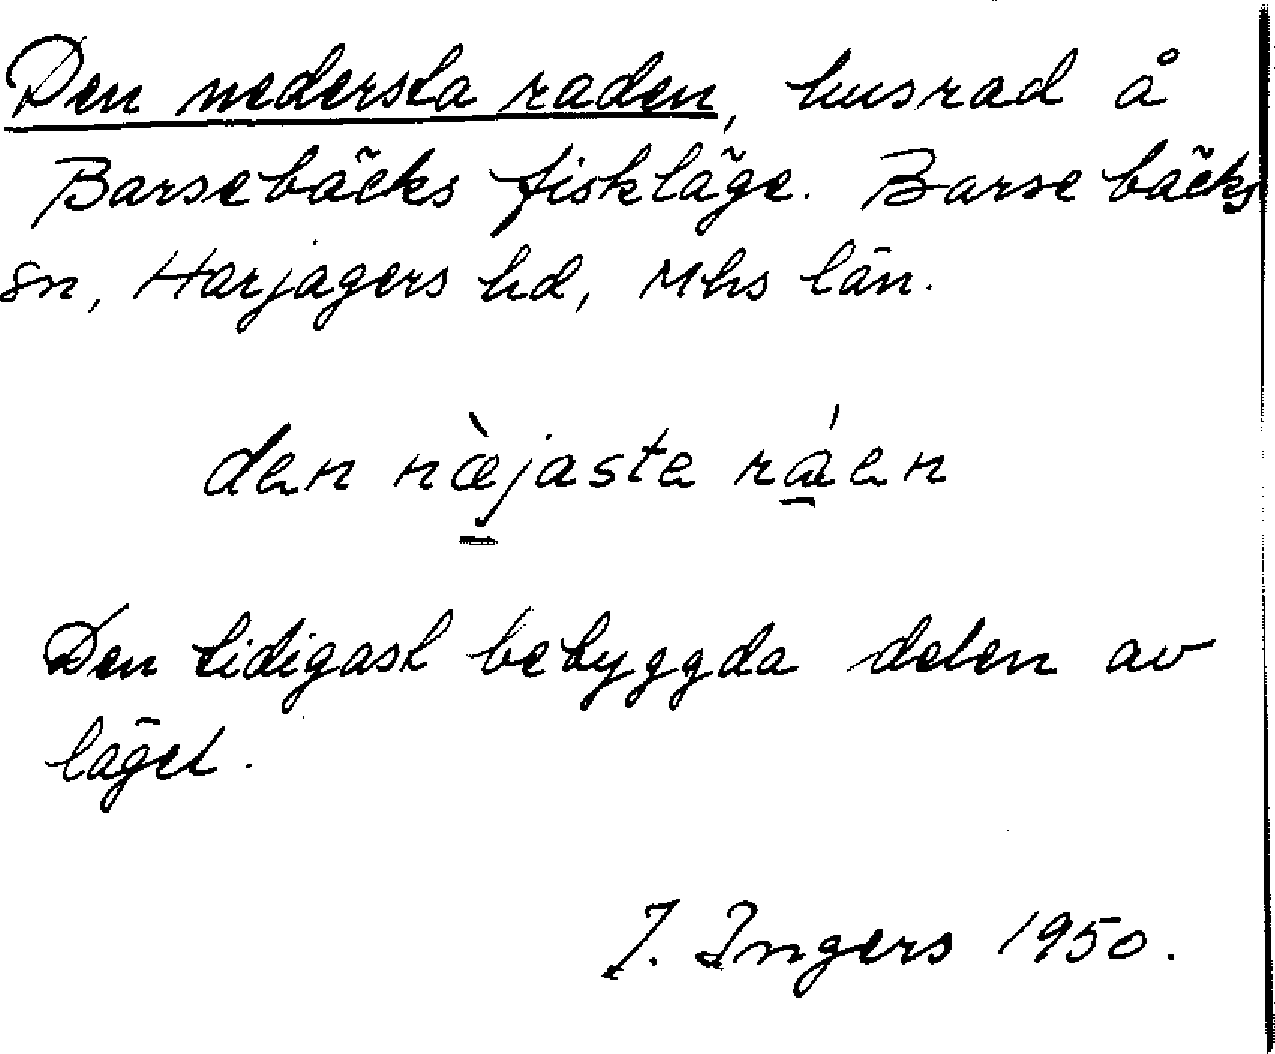 Den nedersta raden, husrad å
Barsebäcks fiskläge. Barsebäcks
sn, Harjagers hd, Mhs län.
den næ̀jaste ráen
Den tidigast bebyggda delen av
läget.
I. Ingers 1950.